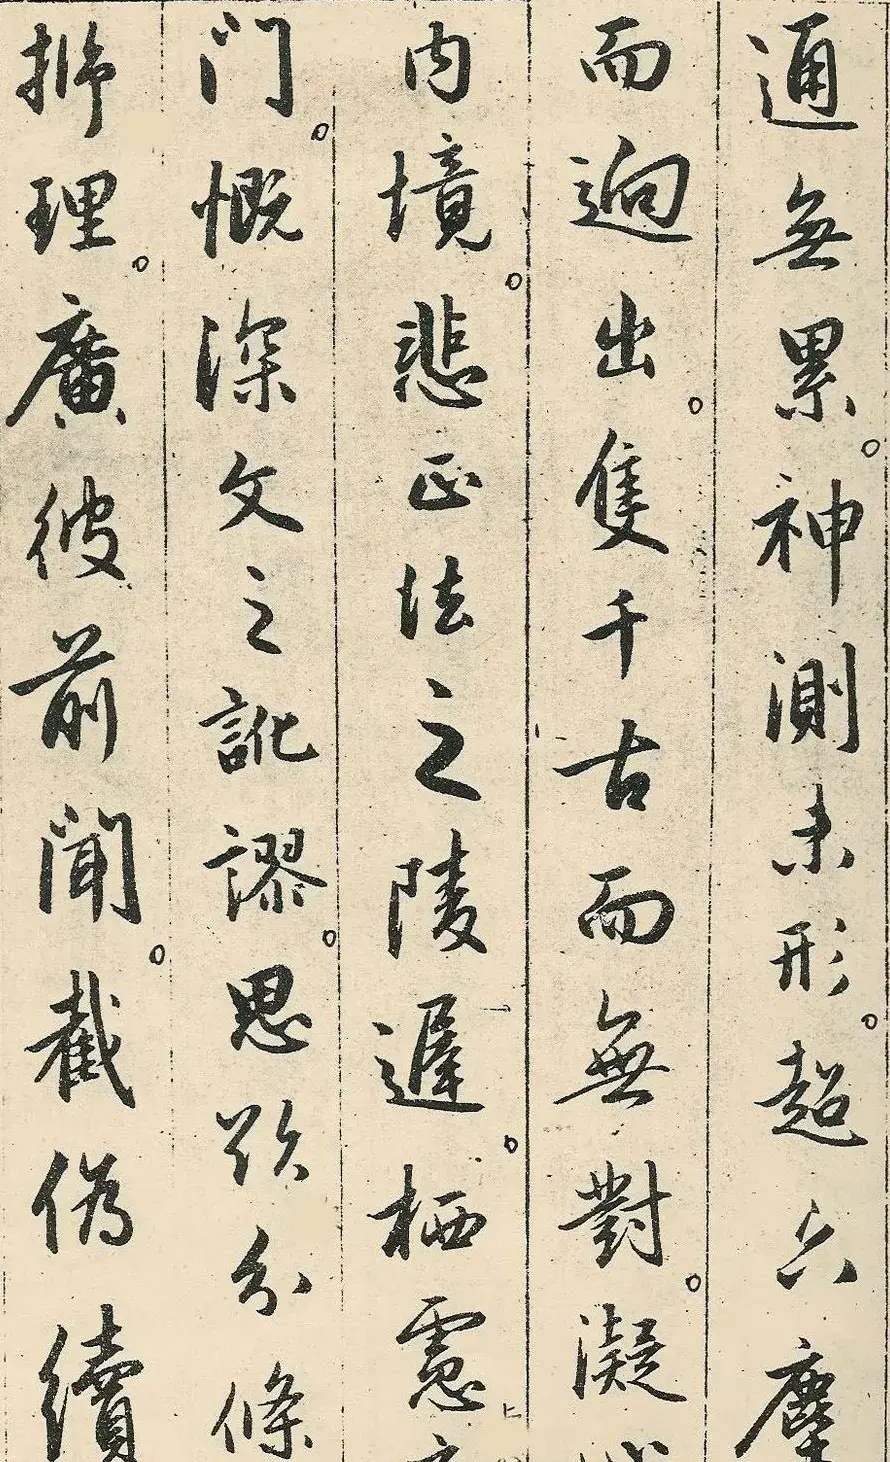 通無累。神測未形。超六塵
而迥出。隻千古而無對。凝
內境。悲正法之陵遲。栖慮
門。慨深文之訛謬。思欲分條
析理。廣彼前聞。截偽續